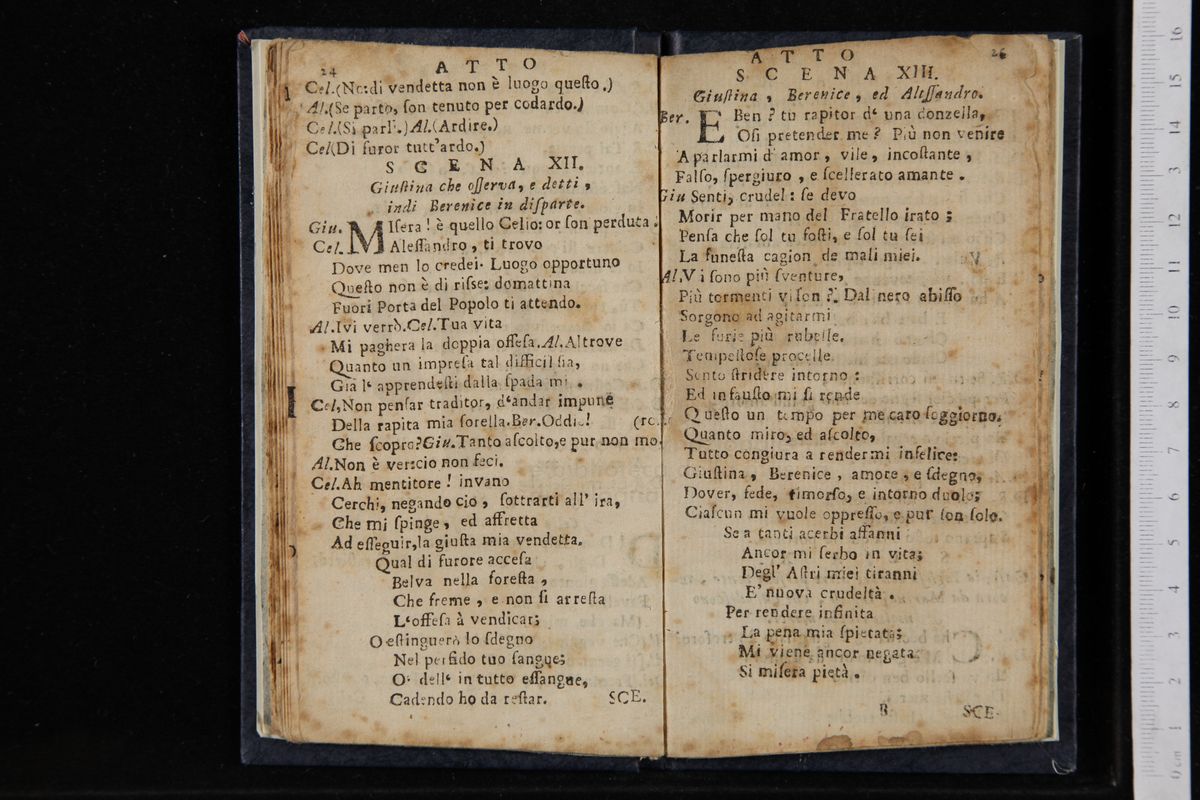 24
ATTO
Cel.(No: di vendetta non è luogo queſto.)
Al.(Se parto, ſon tenuto per codardo.)
Cel.(Si parli.) Al.(Ardire.)
Cel(Di furor tutt'ardo.)
SCENA XII.
Giuſtina che oſſerva, e detti,
indi Berenice in diſparte.
Giu. MIſera! è quello Celio: or ſon perduta.
Cel. Aleſſandro, ti trovo
Dove men lo credei. Luogo opportuno
Queſto non è di riſse: domattina
Fuori Porta del Popolo ti attendo.
Al.Ivi verrò. Cel.Tua vita
Mi paghera la doppia offeſa. Al.Altrove
Quanto un impreſa tal difficil ſia,
Gia l' apprendeſti dalla ſpada mi .
Cel,Non penſar traditor, d'andar impune
Della rapita mia ſorella. Ber.Oddio! (ro.
Che ſcopro? Giu.Tanto aſcolto, e pur non mo.
Al.Non è ver: ciò non feci.
Cel.Ah mentitore! invano
Cerchi, negando ciò, ſottrarti all' ira,
Che mi ſpinge, ed affretta
Ad eſſeguir, la giuſta mia vendetta.
Qual di furore acceſa
Belva nella foreſta,
Che freme, e non ſi arreſta
L'offeſa à vendicar;
O eſtinguerò lo ſdegno
Nel perfido tuo ſangue;
O' dell' in tutto eſſangue,
Cadendo ho da reſtar.
SCE.
ATTO
SCENA XIII.
Giuſtina, Berenice, ed Aleſſandro.
Ber. EBen? tu rapitor d' una donzella,
Oſi pretender me? Più non venire
A parlarmi d' amor, vile, incoſtante,
Falſo, ſpergiuro, e ſcellerato amante.
Giu Senti, crudel: ſe devo
Morir per mano del Fratello irato;
Penſa che ſol tu foſti, e ſol tu ſei
La funeſta cagion de mali miei.
Al,Vi ſono più ſventure,
Più tormenti vi ſon? Dal nero abiſſo
Sorgono ad agitarmi
Le furie più rubelle.
Tempeſtoſe procelle
Sento ſtridere intorno:
Ed infauſto mi ſi rende
Queſto un tempo per me caro ſoggiorno.
Quanto miro, ed aſcolto,
Tutto congiura a rendermi infelice:
Giuſtina, Berenice, amore, e ſdegno,
Dover, fede, timorſo, e intorno duolo;
Ciaſcun mi vuole oppreſſo, e pur ſon ſolo.
Se a tanti acerbi affanni
Ancor mi ſerbo in vita;
Degl' Aſtri miei tiranni
E' nuova crudeltà.
Per rendere infinita
La pena mia ſpietata;
Mi viene ancor negata
Si miſera pietà.
B
SCE-
0 cm 1 2 3 4 5 6 7 8 9 10 11 12 13 14 15 16